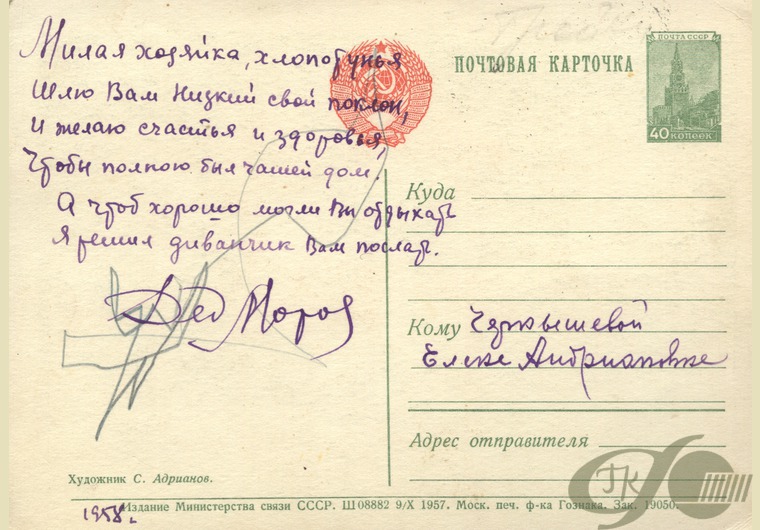 Милая хозяйка, хлопотунья
Шлю Вам Низкий свой поклон,
И желаю счастья и здоровья,
Чтобы полною был чашей дом.
А чтоб хорошо могли Вы отдыхать
Я решил диванчик Вам послать.
Дед Мороз
ПОЧТОВАЯ КАРТОЧКА
ПОЧТА СССР
40 КОПЕЕК
Куда
Кому Чернышевой
Елене Андриановне
Адрес отправителя
ГК
Художник С. Адрианов.
1958.
Издание Министерства связи СССР. Ш 08882 9/X 1957. Моск. печ. ф-ка Гознака. Зак. 19050.